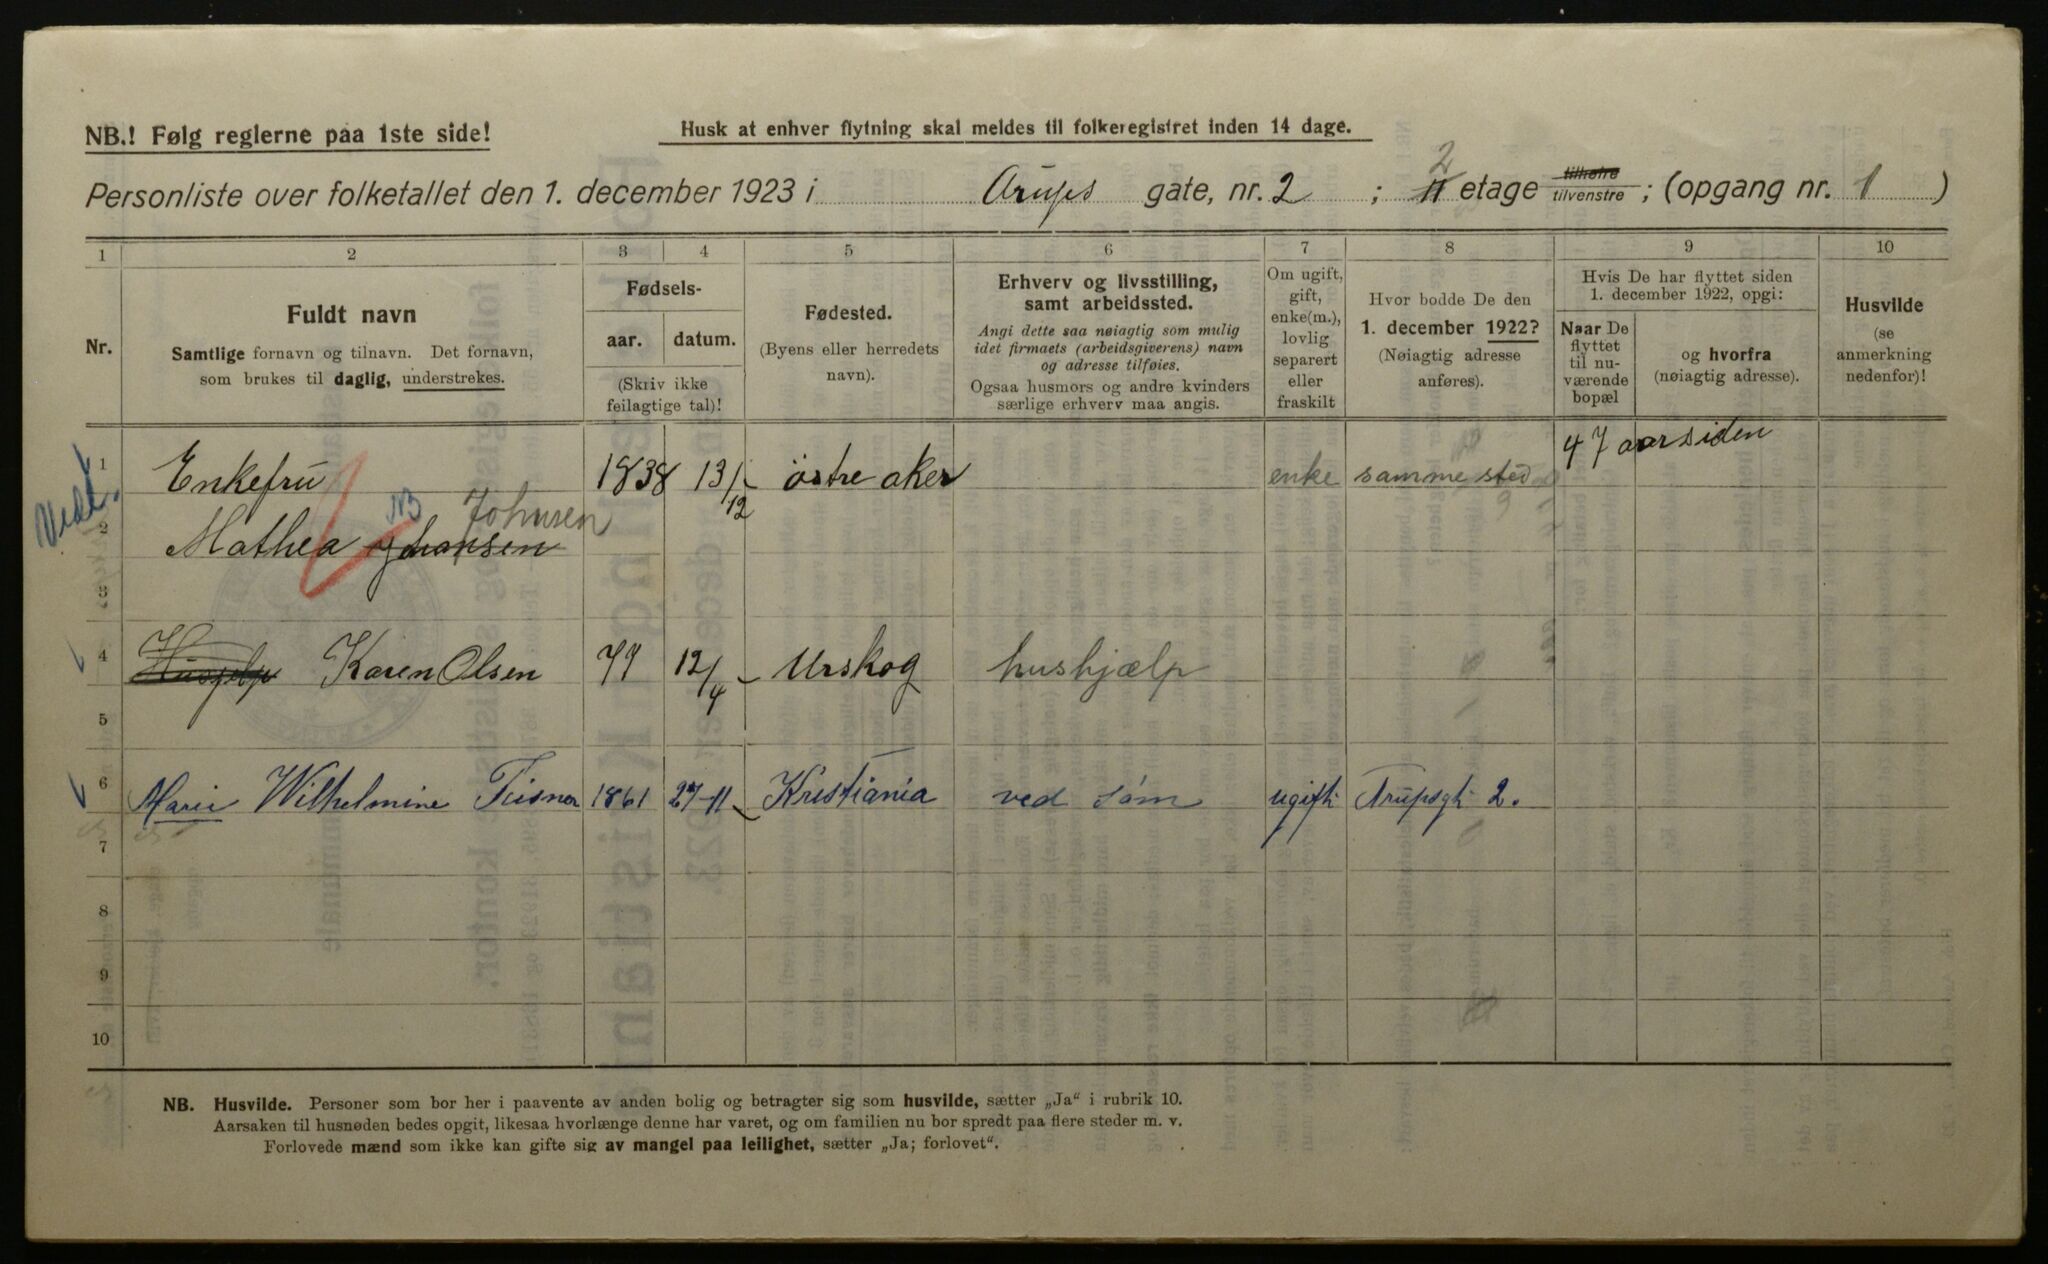 NB.! Følg reglerne paa 1ste side!
Husk at enhver flytning skal meldes til folkeregistret inden 14 dage.
Personliste over folketallet den 1. december 1923 i Arups gate, nr. 2 ; 2 etage tilhøire tilvenstre ; (opgang nr. 1 )
1 2 3 4 5 6 7 8 9 10
Nr.
Fuldt navn
Samtlige fornavn og tilnavn. Det fornavn,
som brukes til daglig, understrekes.
Fødsels-
aar. datum.
(Skriv ikke
feilagtige tal)!
Fødested.
(Byens eller herredets
navn).
Erhverv og livsstilling,
samt arbeidssted.
Angi dette saa nøiagtig som mulig
idet firmaets (arbeidsgiverens) navn
og adresse tilføies.
Ogsaa husmors og andre kvinders
særlige erhverv maa angis.
Om ugift,
gift,
enke(m.),
lovlig
separert
eller
fraskilt
Hvor bodde De den
1. december 1922?
(Nøiagtig adresse
anføres).
Hvis De har flyttet siden
1. december 1922, opgi:
Naar De
flyttet
til nu-
værende
bopæl
og hvorfra
(nøiagtig adresse).
Husvilde
(se
anmerkning
nedenfor)!
1 Enkefru 1838 13/12 østre aker enke samme sted 47 aar siden
NB Johnsen
2 Mathea Johansen
3
4 Karen Olsen 77 12/4 Urskog hushjælp
5
6 Marie Wilhelmine 1861 27-11 Kristiania ved søm ugift Arupsgt 2.
7
8
9
10
NB. Husvilde. Personer som bor her i paavente av anden bolig og betragter sig som husvilde, sætter „Ja" i rubrik 10.
Aarsaken til husnøden bedes opgit, likesaa hvorlænge denne har varet, og om familien nu bor spredt paa flere steder m. v.
Forlovede mænd som ikke kan gifte sig av mangel paa leilighet, sætter „Ja; forlovet".